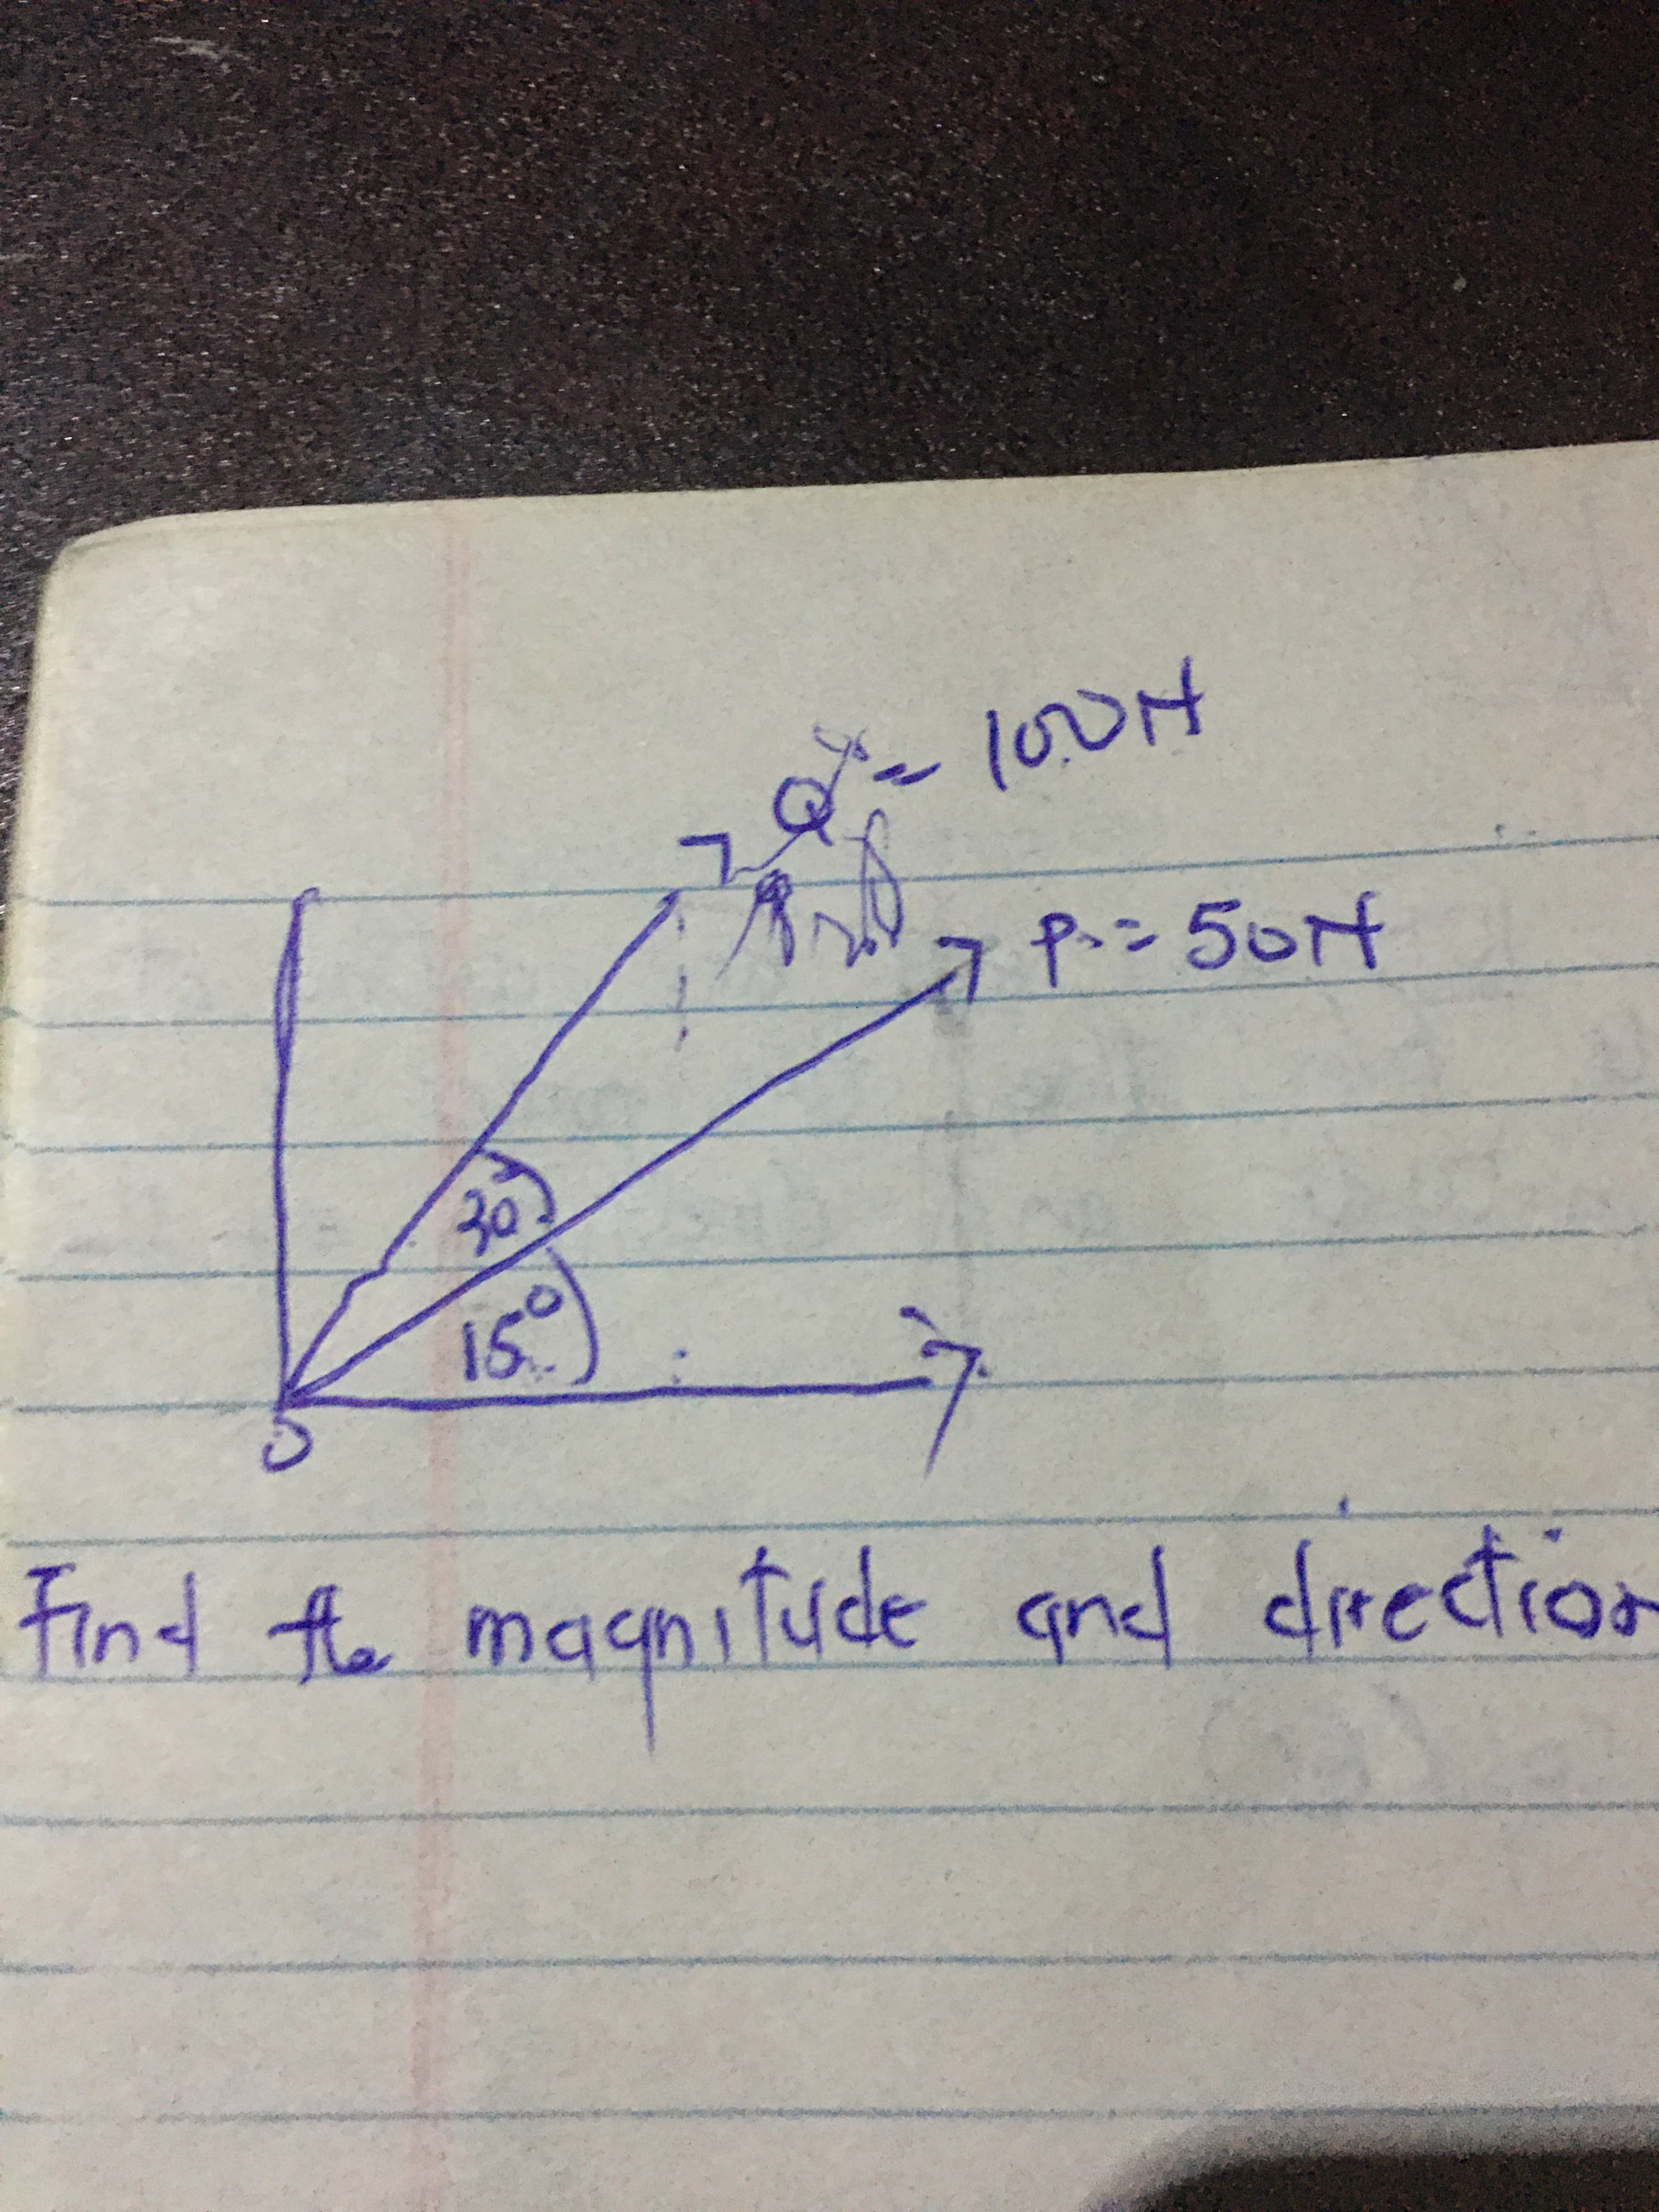 Q = 100N
P = 50N
30°
15°
O
Find the magnitude and direction